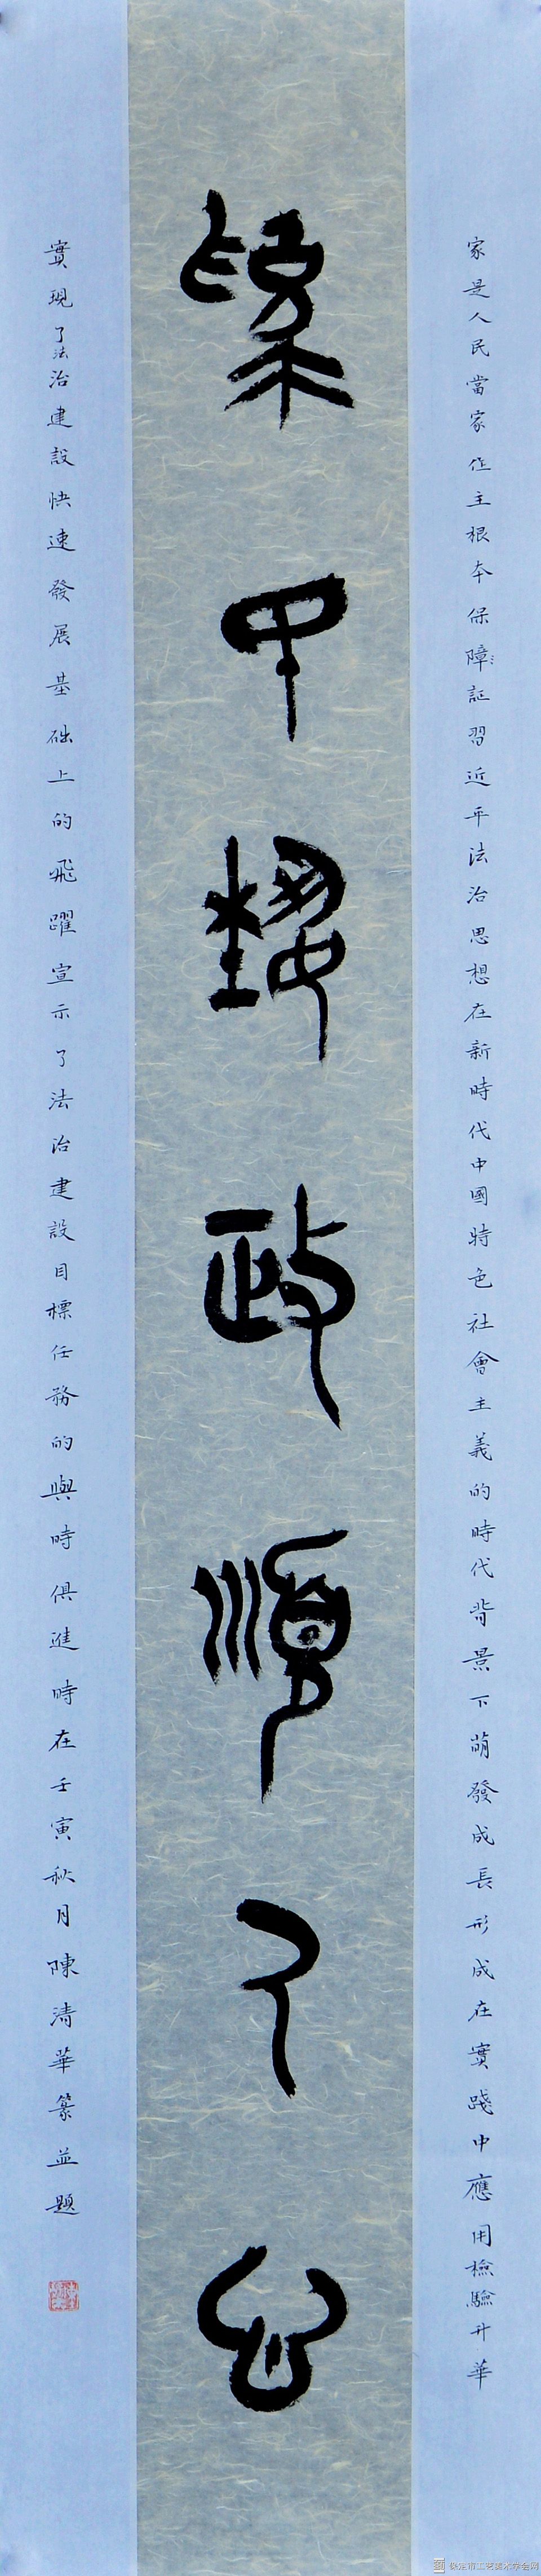 家是人民當家作主根本保障〻証習近平法治思想在新時代中國特色社會主義的時代背景下萌發成長形成在實踐中應用檢驗升華
政順人心
實現了法治建設快速發展基础上的飛躍宣示了法治建設目標任務的與時俱進時在壬寅秋月陳清華篆並題
保定市工艺美术学会网